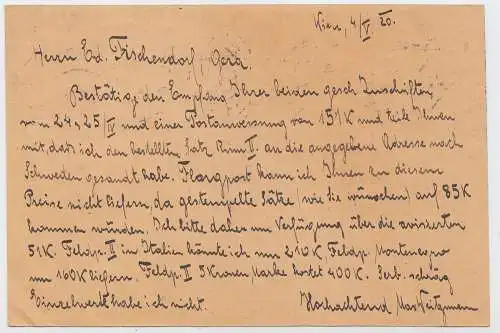 Wien, 4/V 20.
Herrn Ed. Fischendorf, Gera!
Bestätige den Empfang Ihrer beiden gesch. Zuschriften
vom 24 u 25/IV und einer Postanweisung von 151K und teile Ihnen
mit, daß ich den bestellten Satz Rum II. an die angegebene Adresse nach
Schweden gesandt habe. Flugpost kann ich Ihnen zu diesem
Preise nicht liefern, da gestempelte Sätze (wie Sie wünschen) auf 85K
kommen würden. Ich bitte daher um Verfügung über die avisierten
51K. Feldp. II in Italien könnte ich um 210K Feldp. Montenegro
um 160K liefern. Feldp. II 5 Kronen Marke kostet 400K. Serb. schräg
Einzelwerte habe ich nicht.
Hochachtend Max